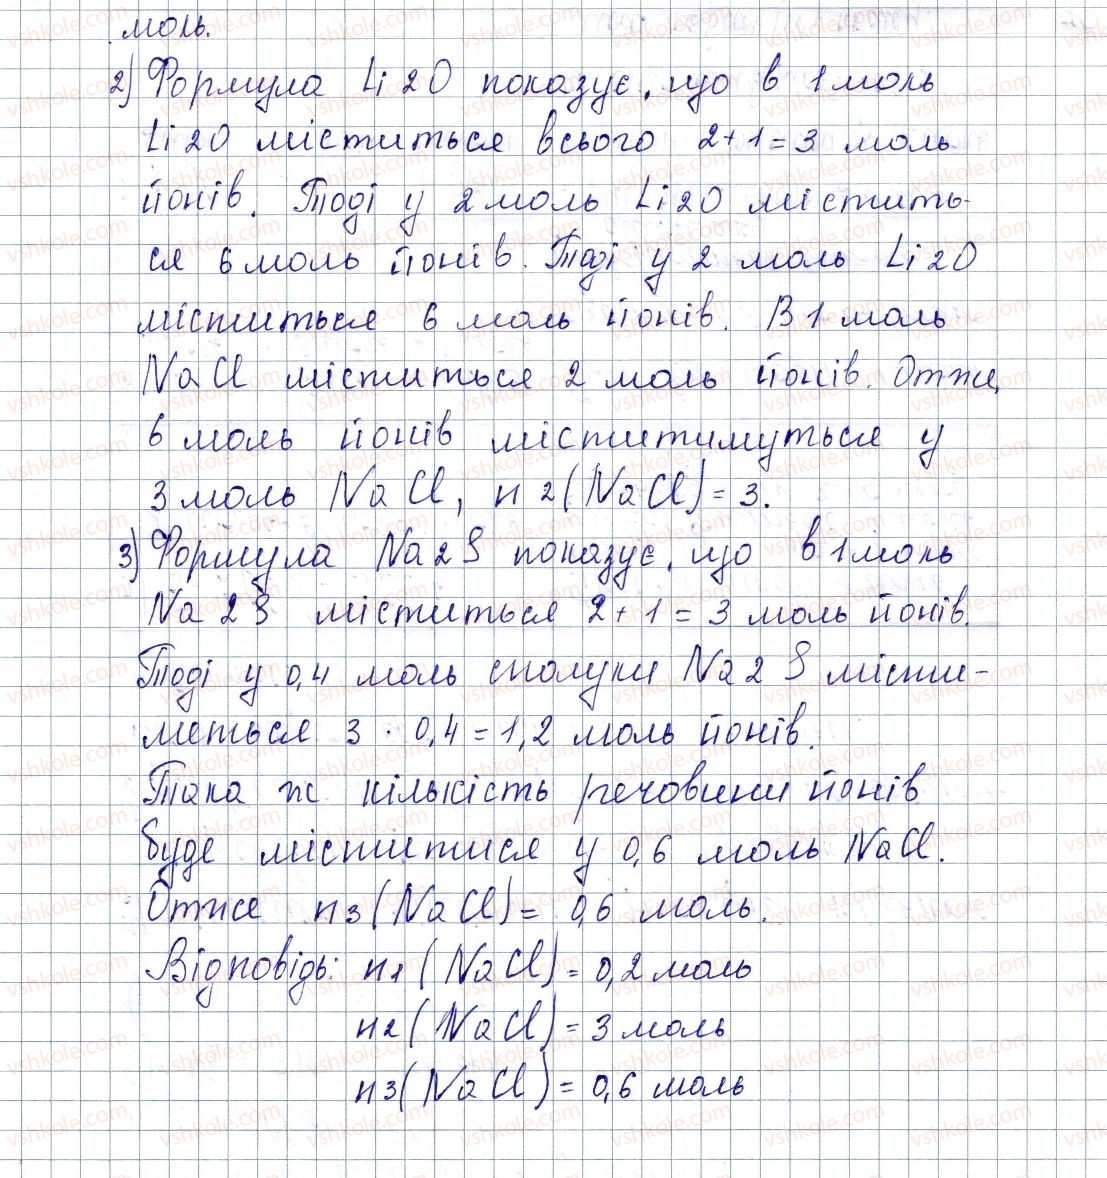 моль.
2) Формула Li2O показує, що в 1 моль
Li2O міститься всього 2+1=3 моль
йонів. Тоді у 2 моль Li2O містить-
ся 6 моль йонів. Тоді у 2 моль Li2O
міститься 6 моль йонів. В 1 моль
NaCl міститься 2 моль йонів. Отже,
6 моль йонів міститимуться у
3 моль NaCl, n2(NaCl)=3.
3) Формула Na2S показує, що в 1 моль
Na2S міститься 2+1=3 моль йонів.
Тоді у 0,4 моль сполуки Na2S місти-
меться 3·0,4=1,2 моль йонів.
Така ж кількість речовини йонів
буде міститися у 0,6 моль NaCl.
Отже n3(NaCl)=0,6 моль.
Відповідь: n1(NaCl)=0,2 моль
n2(NaCl)=3 моль
n3(NaCl)=0,6 моль